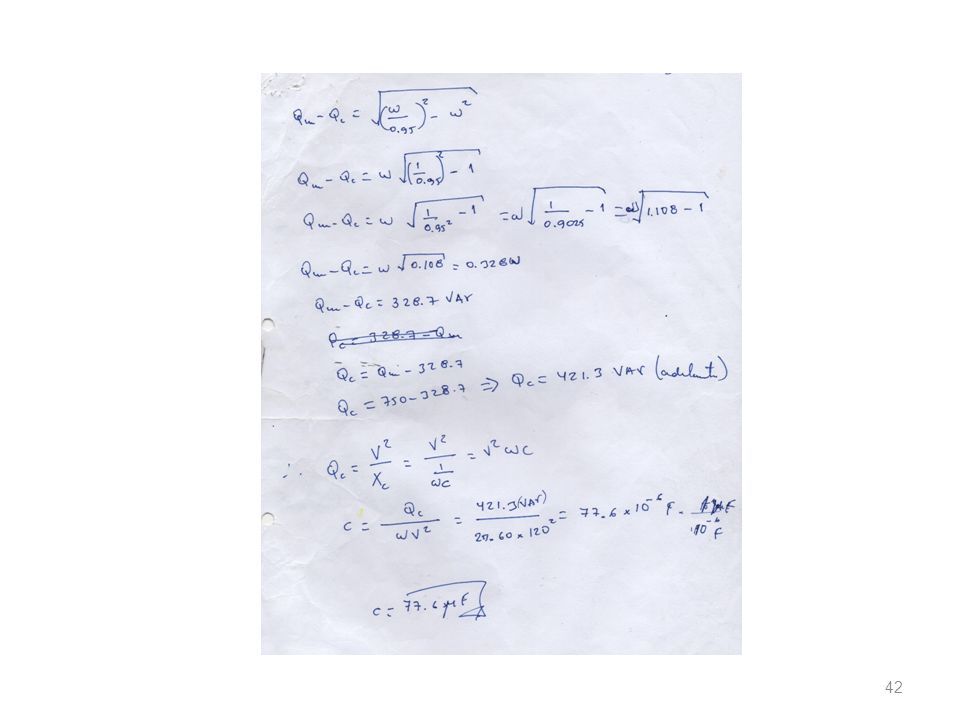 Qm - Qc = √((W/0.95)² - W²)
Qm - Qc = W √((1/0.95)² - 1)
Qm - Qc = W √(1/0.95² - 1) = W √(1/0.9025 - 1) = W √(1.108 - 1)
Qm - Qc = W √0.108 = 0.328W
Qm - Qc = 328.7 VAr
Qc = 328.7 - Qm
Qc = Qm - 328.7
Qc = 750 - 328.7 ⇒ Qc = 421.3 VAR (adelanto)
∴ Qc = V²/Xc = V²/(1/ωC) = V² ωC
C = Qc/ωV² = 421.3(VAr)/2π.60 x 120² = 77.6 x 10⁻⁶ F. 1μF/10⁻⁶ F
C = 77.6 μF
42